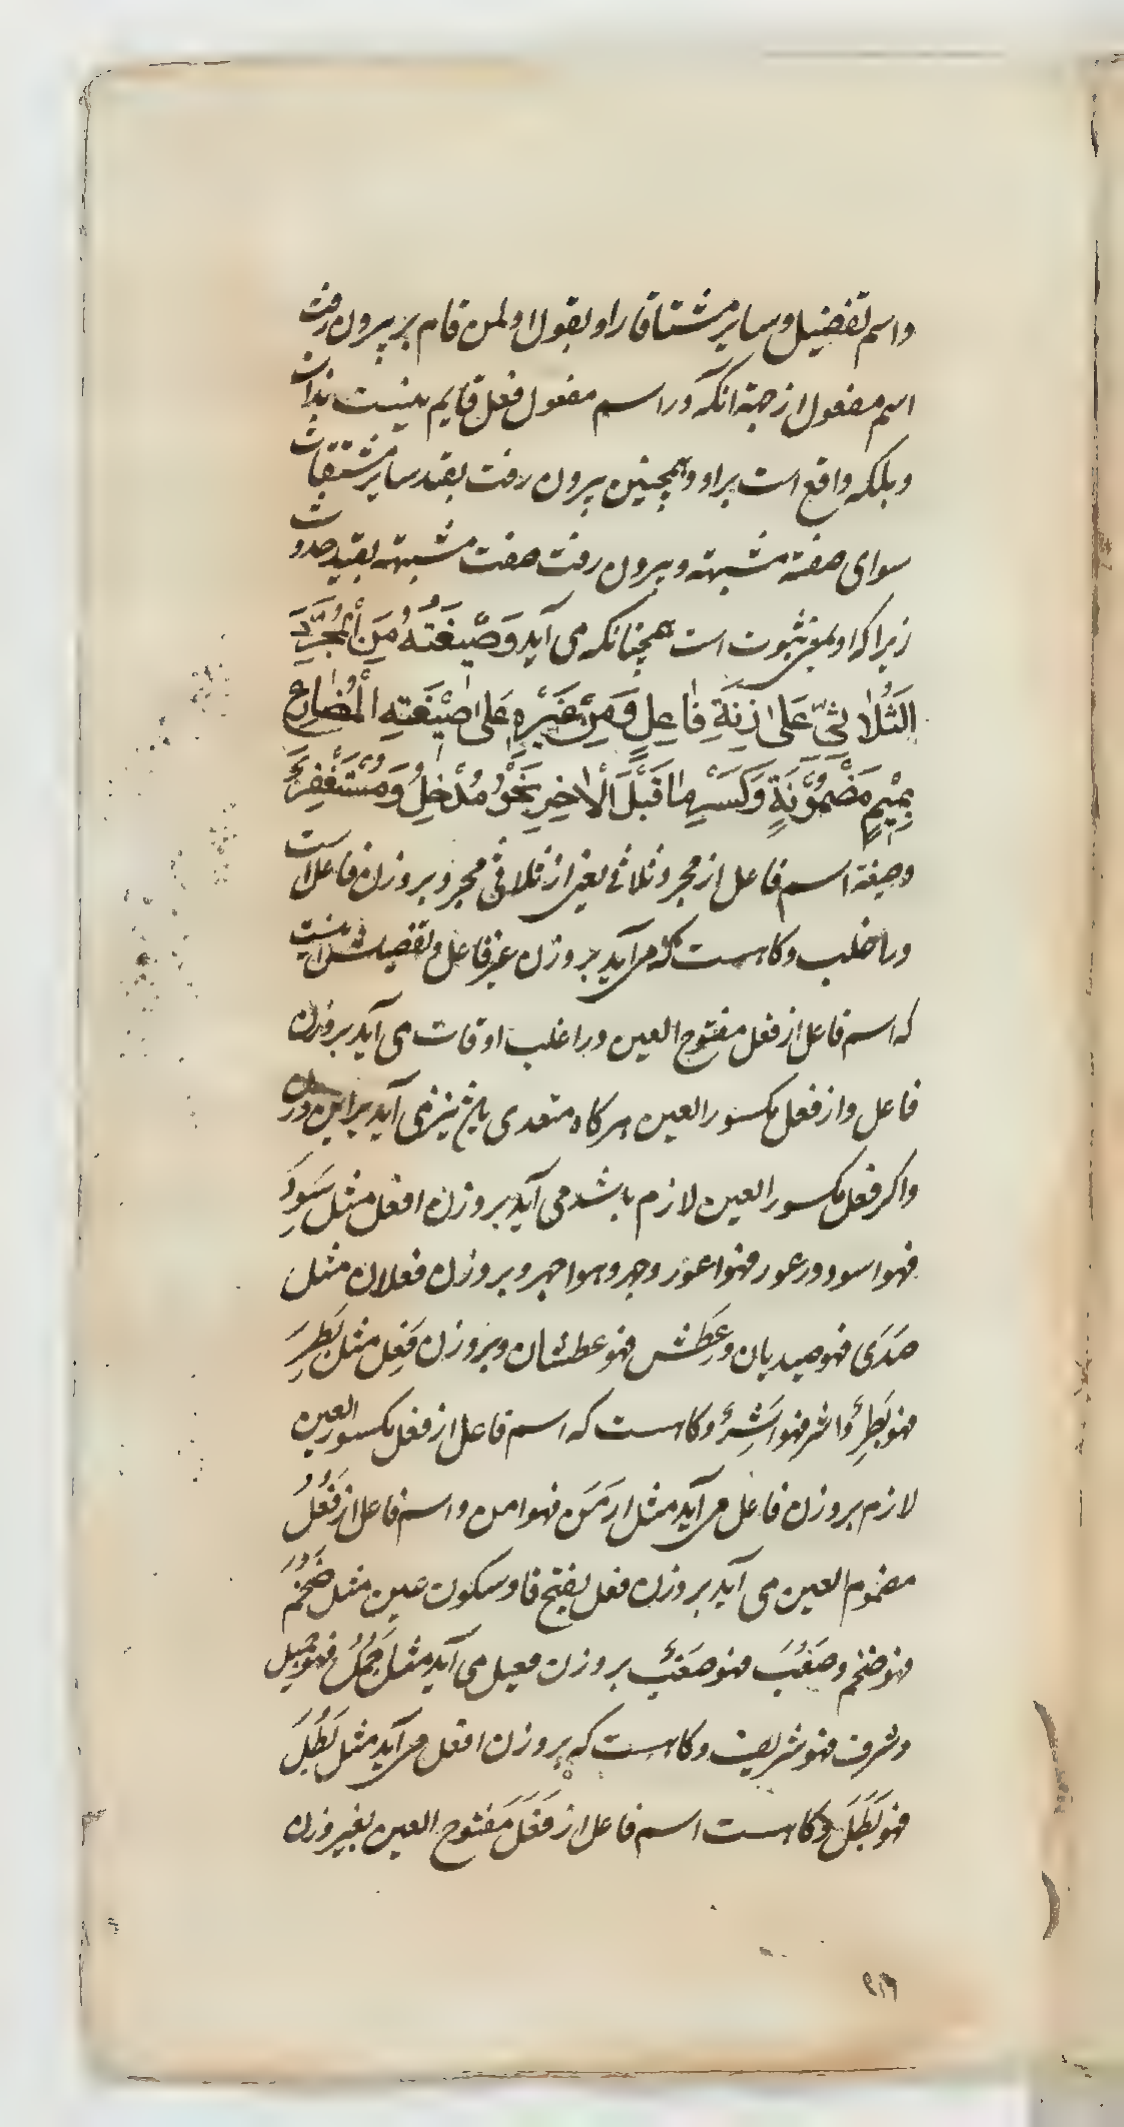 واسم تفضیل و سایر مشتقات را و بقول او لمن قام به بیرون رفت
اسم مفعول از جهة آنکه در اسم مفعول فعل قایم نیست بذات
و بلکه واقع است بر او و همچنین بیرون رفت بقید سایر مشتقات
سوای صفة مشبهه و بیرون رفت صفت مشبهه بقید حدوث
زیرا که او بمعنی ثبوت است همچنانکه می آید وَصِیْغَتُهُ مِنَ الْمُجَرَّدِ
الثُلاثِیِّ عَلیٰ زِنَةِ فٰاعِلٍ وَمِنْ غَیْرِهِ عَلیٰ صِیْغَتِهِ الْمُضٰارِعِ
بِمِیْمٍ مَضْمُوْمَةٍ وَکَسْرِ مٰا قَبْلَ الْاٰخِرِ نَحْوُ مُدْخِلٌ وَمُسْتَغْفِرٌ
وصیغة اسم فاعل از مجرد ثلاثی یعنی از ثلاثی مجرد بر وزن فاعل است
در اغلب و کاهست که می آید بر وزن غیر فاعل و تفصیلش اینست
که اسم فاعل از فعل مفتوح العین در اغلب اوقات می آید بر وزن
فاعل و از فعل مکسور العین هر کاه متعدی نیز می آید بر این وزن
و اکر فعل مکسور العین لازم باشد می آید بر وزن افعل مثل سَوِدَ
فهو اسود و عور فهو اعور و جهر و هو اجهر و بر وزن فعلان مثل
صَدَی فهو صدیان و عَطِش فهو عطشان و بر وزن فَعِل مثل بَطِرَ
فهو بَطِرٌ و اشر فهو اَشِرٌ و کاهست که اسم فاعل از فعل مکسور العین
لازم بر وزن فاعل می آید مثل اَمِنَ فهو امن و اسم فاعل از فَعُلُ
مضموم العین می آید بر وزن فعل بفتح فا و سکون عین مثل ضَخُمَ
فهو ضخم و صَعُبَ فهو صَعْبٌ بر وزن فعیل می آید مثل جَمُلَ فهو جمیل
و شرف فهو شریف و کاهست که بر وزن افعل می آید مثل بَطُلَ
فهو بَطَلَ و کاهست اسم فاعل از فَعَلَ مَفتوح العین بغیر وزن